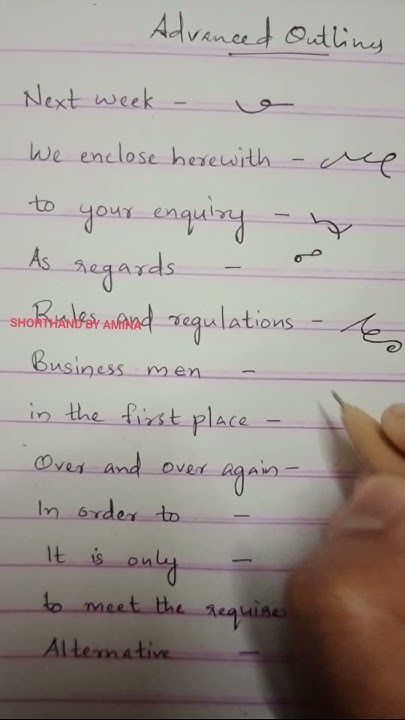 Advanced Outlines
Next week -
We enclose herewith -
to your enquiry -
As regards -
Rules and regulations -
SHORTHAND BY AMINA
Business men -
in the first place -
Over and over again -
In order to -
It is only -
to meet the require
Alternative -